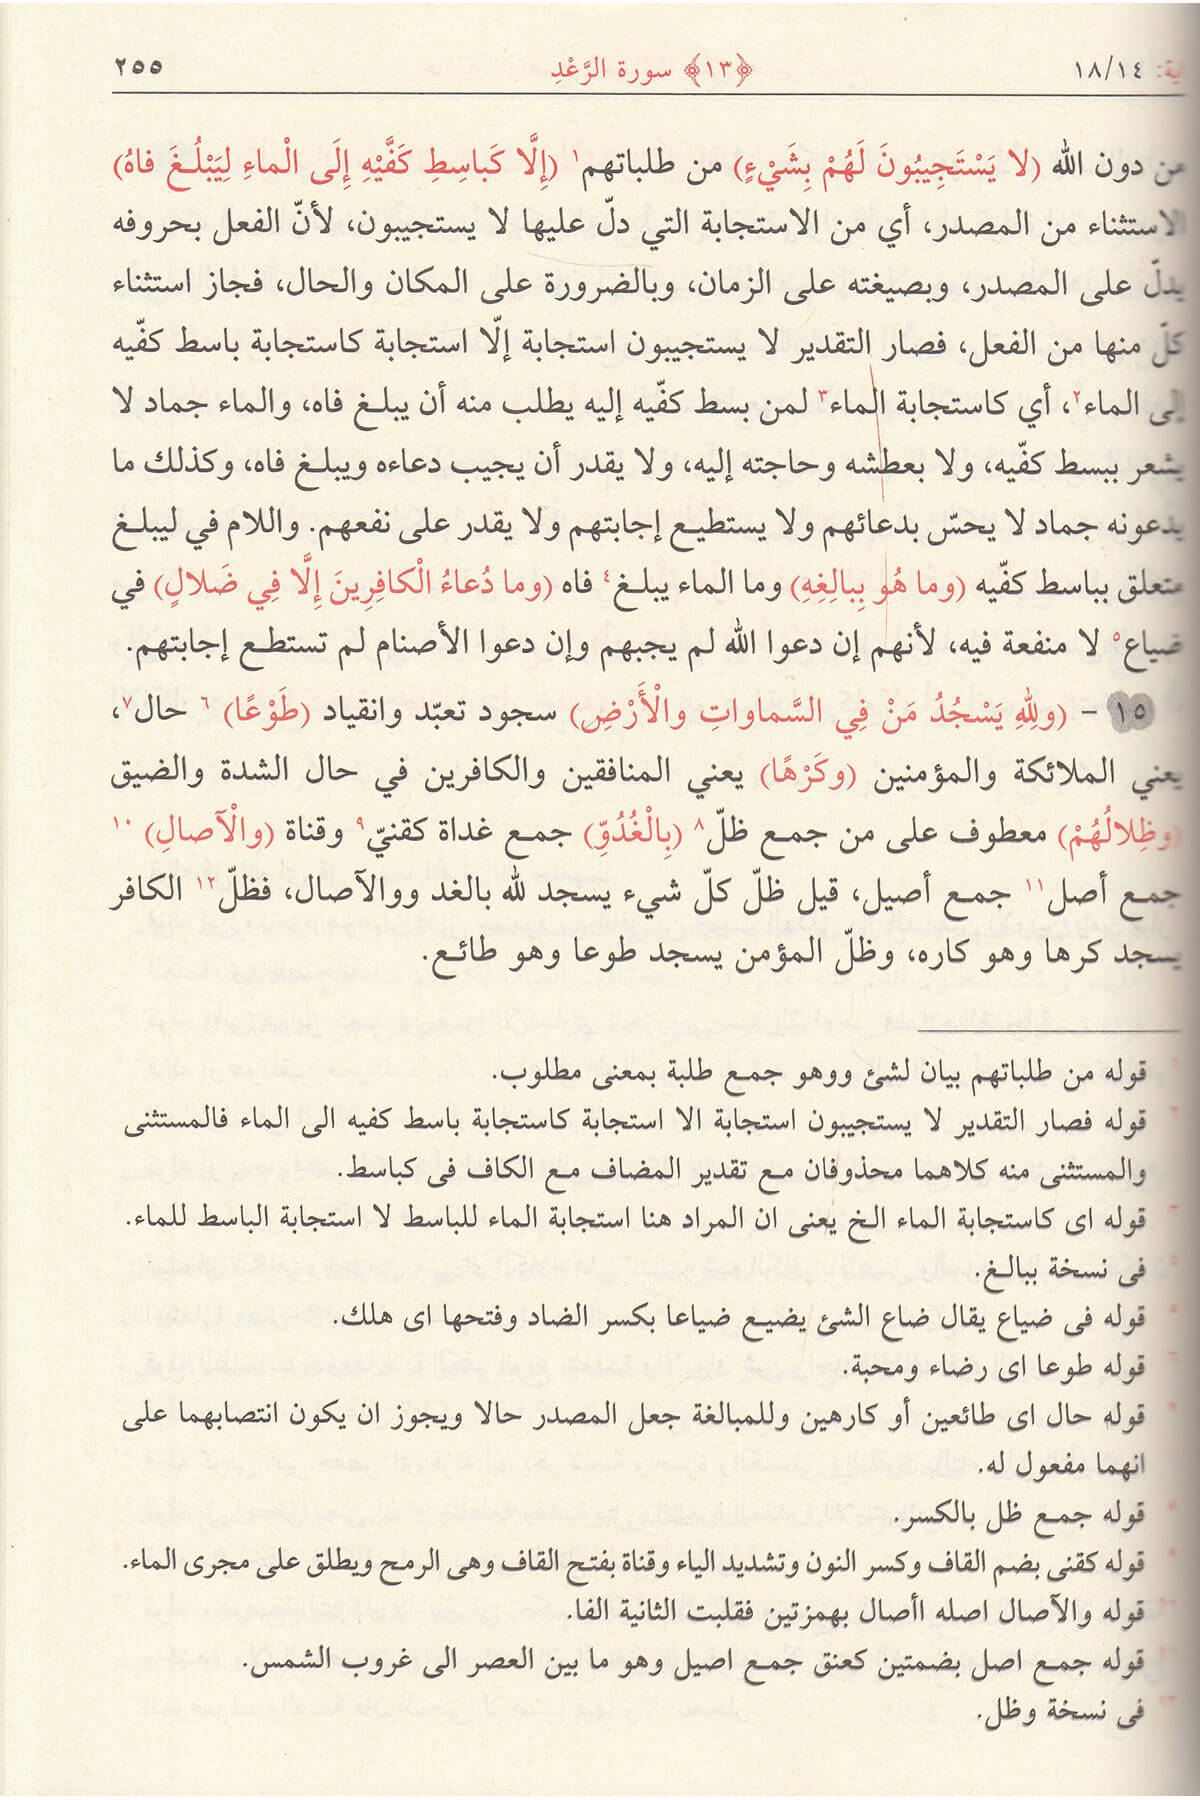 ية: ١٨/١٤ ﴿١٣﴾ سورة الرَّعْدِ ٢٥٥
من دون الله (لا يَسْتَجِيبُونَ لَهُمْ بِشَيْءٍ) من طلباتهم١ (إِلَّا كَباسِطِ كَفَّيْهِ إِلَى الْماءِ لِيَبْلُغَ فاهُ)
الاستثناء من المصدر، أي من الاستجابة التي دلّ عليها لا يستجيبون، لأنّ الفعل بحروفه
يدلّ على المصدر، وبصيغته على الزمان، وبالضرورة على المكان والحال، فجاز استثناء
كلّ منها من الفعل، فصار التقدير لا يستجيبون استجابة إلّا استجابة كاستجابة باسط كفّيه
إلى الماء٢، أي كاستجابة الماء٣ لمن بسط كفّيه إليه يطلب منه أن يبلغ فاه، والماء جماد لا
يشعر ببسط كفّيه، ولا بعطشه وحاجته إليه، ولا يقدر أن يجيب دعاءه ويبلغ فاه، وكذلك ما
يدعونه جماد لا يحسّ بدعائهم ولا يستطيع إجابتهم ولا يقدر على نفعهم. واللام في ليبلغ
متعلق بباسط كفّيه (وما هُو بِبالِغِهِ) وما الماء يبلغ٤ فاه (وما دُعاءُ الْكافِرِينَ إِلَّا فِي ضَلالٍ) في
ضياع٥ لا منفعة فيه، لأنهم إن دعوا الله لم يجبهم وإن دعوا الأصنام لم تستطع إجابتهم.
١٥ – (ولِلهِ يَسْجُدُ مَنْ فِي السَّماواتِ والْأَرْضِ) سجود تعبّد وانقياد (طَوْعًا) ٦ حال٧،
يعني الملائكة والمؤمنين (وكَرْهًا) يعني المنافقين والكافرين في حال الشدة والضيق
(وظِلالُهُمْ) معطوف على من جمع ظلّ٨ (بِالْغُدُوِّ) جمع غداة كقنيّ٩ وقناة (والْآصالِ) ١٠
جمع أصل١١ جمع أصيل، قيل ظلّ كلّ شيء يسجد لله بالغد ووالآصال، فظلّ١٢ الكافر
يسجد كرها وهو كاره، وظلّ المؤمن يسجد طوعا وهو طائع.
قوله من طلباتهم بيان لشئ ووهو جمع طلبة بمعنى مطلوب.
قوله فصار التقدير لا يستجيبون استجابة الا استجابة كاستجابة باسط كفيه الى الماء فالمستثنى
والمستثنى منه كلاهما محذوفان مع تقدير المضاف مع الكاف فى كباسط.
قوله اى كاستجابة الماء الخ يعنى ان المراد هنا استجابة الماء للباسط لا استجابة الباسط للماء.
فى نسخة ببالغ.
قوله فى ضياع يقال ضاع الشئ يضيع ضياعا بكسر الضاد وفتحها اى هلك.
قوله طوعا اى رضاء ومحبة.
قوله حال اى طائعين أو كارهين وللمبالغة جعل المصدر حالا ويجوز ان يكون انتصابهما على
انهما مفعول له.
قوله جمع ظل بالكسر.
قوله كقنى بضم القاف وكسر النون وتشديد الياء وقناة بفتح القاف وهى الرمح ويطلق على مجرى الماء.
قوله والآصال اصله اأصال بهمزتين فقلبت الثانية الفا.
قوله جمع اصل بضمتين كعنق جمع اصيل وهو ما بين العصر الى غروب الشمس.
فى نسخة وظل.